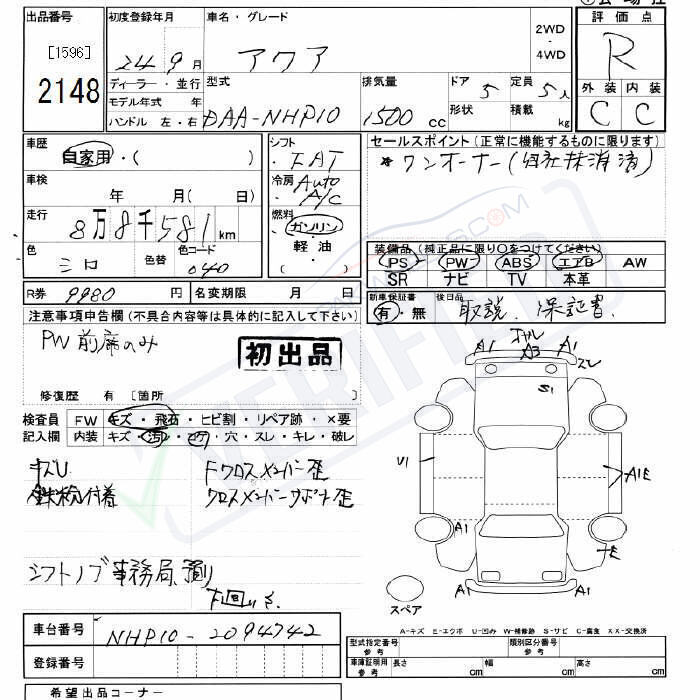 出品番号
[1596]
2148
初度登録年月
24 9月
車名・グレード
アクア
2WD
・
4WD
評価点
R
ディーラー・並行
モデル年式 年
ハンドル 左・右
型式
DAA-NHP10
排気量
1500 cc
ドア 5
定員 5人
形状
積載 kg
外装 内装
C C
車歴
自家用・( )
シフト
FAT
セールスポイント(正常に機能するものに限ります)
*ワンオーナー(自社抹消済)
車検
年 月( 日)
冷房 Auto A/C
走行
8万8千581km
燃料
ガソリン
・
軽油
( )
色
シロ
色替
色コード
040
装備品(純正品に限り○をつけてください)
PS PW ABS エアB AW
SR ナビ TV 本革
R券 9980 円 名変期限 月 日
新車保証書
有・無
後日品
取説、保証書、
注意事項申告欄(不具合内容等は具体的に記入して下さい)
PW前席のみ
初出品
修復歴 有 [箇所
検査員
記入欄
FW キズ・飛石・ヒビ割・リペア跡・×要
内装 キズ・汚・コゲ・穴・スレ・キレ・破レ
キズU
鉄粉付着
Fクロスメンバー歪
クロスメンバーサポート歪
シフトノブ事務局預り
下回りさ
A1 A3 A1
スレ
S1
U1
A1E
A1
A1 A1
スペア
A-キズ E-エクボ U-凹み W-補修跡 S-サビ C-腐食 XX-交換済
車台番号 NHP10-2094742
登録番号
型式指定番号
参考
類別区分番号
参考
車庫証明用
参考
長さ cm 幅 cm 高さ cm
希望出品コーナー
VERIFIED